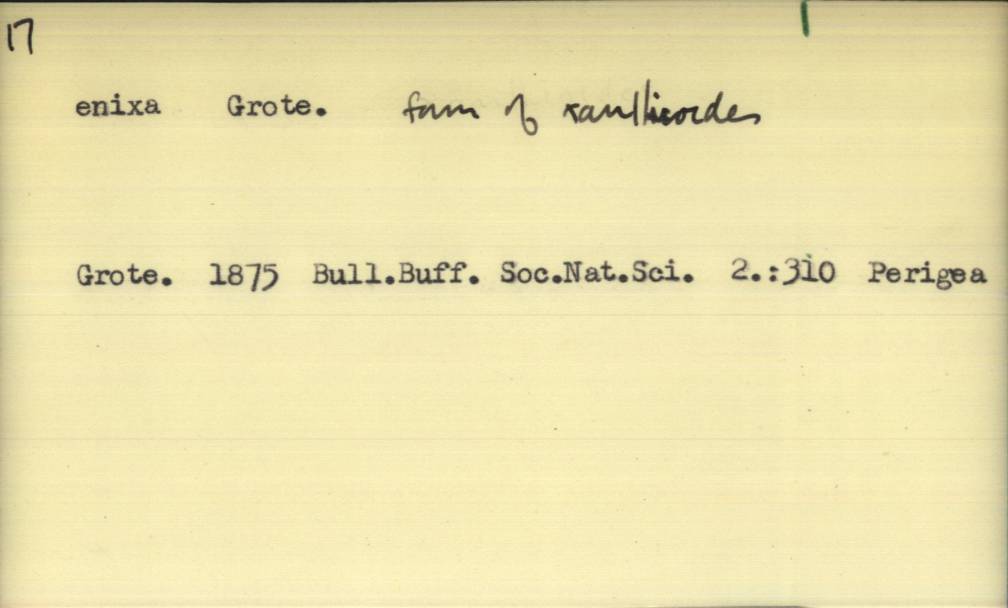 17
enixa Grote. form of xanthioides
Grote. 1875 Bull.Buff. Soc.Nat.Sci. 2.:310 Perigea